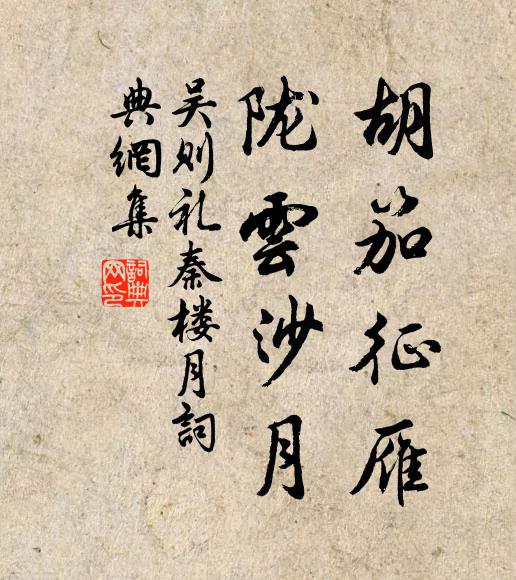 胡笳征雁
陇雲沙月
吴则礼秦楼月詞
典網集
詞典網印